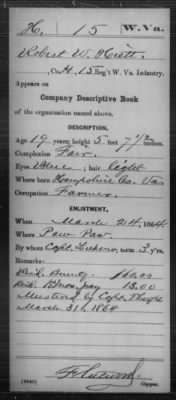 H. 15 W. Va.
Robert W. Hiett
Co. H, 15 Reg't W. Va. Infantry.
Appears on
Company Descriptive Book
of the organization named above.
DESCRIPTION.
Age 19 years; height 5 feet 7 1/2 inches.
Complexion Fair
Eyes Blue ; hair light
Where born Hampshire Co. Va.
Occupation Farmer
ENLISTMENT.
When March 24, 1864.
Where Paw Paw
By whom Capt. ; term 3 y'rs.
Remarks:
Paid. Bounty $60.00
Paid. pay 13.00
Mustered by Capt. Thorpe
March 31, 1864
Copyist.